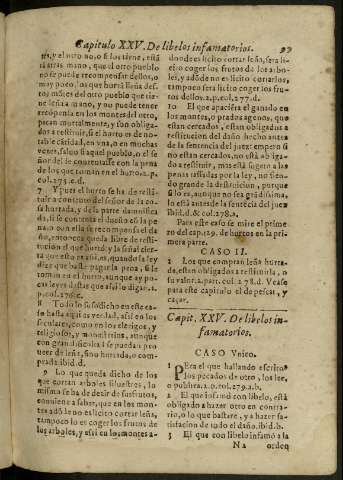 Capitulo XXV. De libelos infamatorios. 99
tes, y el otro no, o si los tiene, està
atras mano, que el otro pueblo
no se puede recompensar dellos, o
muy poco, los que hurtã leña des-
tos mõtes del otro pueblo que tie-
ne leña a mano, y no puede tener
recõpensa en los montes del otro,
pecan mortalmente, y son obliga-
dos a restituir, si el hurto es de no-
table cãtidad, en vna, o en muchas
vezes, saluo si aquel pueblo, o el se
ñor se contentasse con la pena
de los que toman en el hurto. 2. p.
col. 275. c. d.
7 Y pues el hurto se ha de resti-
tuir a contento del señor de la co-
sa hurtada, y de la parte damnifica
da, si se contenta el dueño cõ la pe-
na, o con ella se recompensa el da
ño, entonces queda libre de resti-
tucion el que hurtò; y la señal cier-
ta que esto es assi, es, quando la ley
dize que baste pagar la pena, si le
toman en el hurto, aunque ay po-
cas leyes destas que assi lo digan. 2.
p. col. 276. c.
8 Todo lo susodicho en este ca-
so hasta aqui es verdad, assi en los
seculares, como en los clerigos, y
religiosos, y monasterios, aunque
con gran dificultad se puedan pro
ueer de leña, sino hurtada, o com-
prada. ibid. d.
9 Lo que queda dicho de los
que cortan arboles siluestres, lo
mismo se ha de dezir de sus frutos,
conuiene a saber, que en los mon-
tes adõ no es licito cortar leña,
tampoco es coger los frutos de
los arboles, y assi en los montes a-
donde es licito cortar leña, sera li-
cito coger los frutos de los arbo-
les, y adõde no es licito cortarlos,
tampoco sera licito coger los fru-
tos dellos. 2. p. col. 277. d.
10 El que apacieta el ganado en
los montes, o prados agenos, que
estan cercados, està obligado a
restitucion del daño hecho antes
de la sentencia del juez: empero si
no estan cercados, no està obliga-
do a restituir, mas està sugeto a las
penas tassadas por la ley, no sien-
do grande la destruicion, porque
si lo es, aunque no sea grãdissima,
lo està antes de la sentẽcia del juez
ibid. d. & col. 278. a.
Para este caso se mire el prime-
ro del cap. 159. de hurtos en la pri
mera parte.
CASO II.
1 Los que compran leña hurta-
da, estan obligados a restituirla, o
su valor. 2. part. col. 278. d. Vease
para este capitulo el de pescar, y
caçar.
Capit. XXV. De libelos in-
famatorios.
CASO Vnico.
1 PEca el que hallando escritos
los pecados de otro, los lee,
o publica. 2. p. col. 279. a. b.
2 El que infamò con libelo, està
obligado a hazer otro en contra-
rio, o lo que bastare, y a hazer sa-
tisfacion de todo el daño. ibid. b.
3 El que con libelo infamò a la
N 2 ordeq